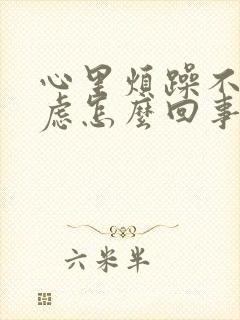 心里煩躁不
慮怎麼回事
六米半